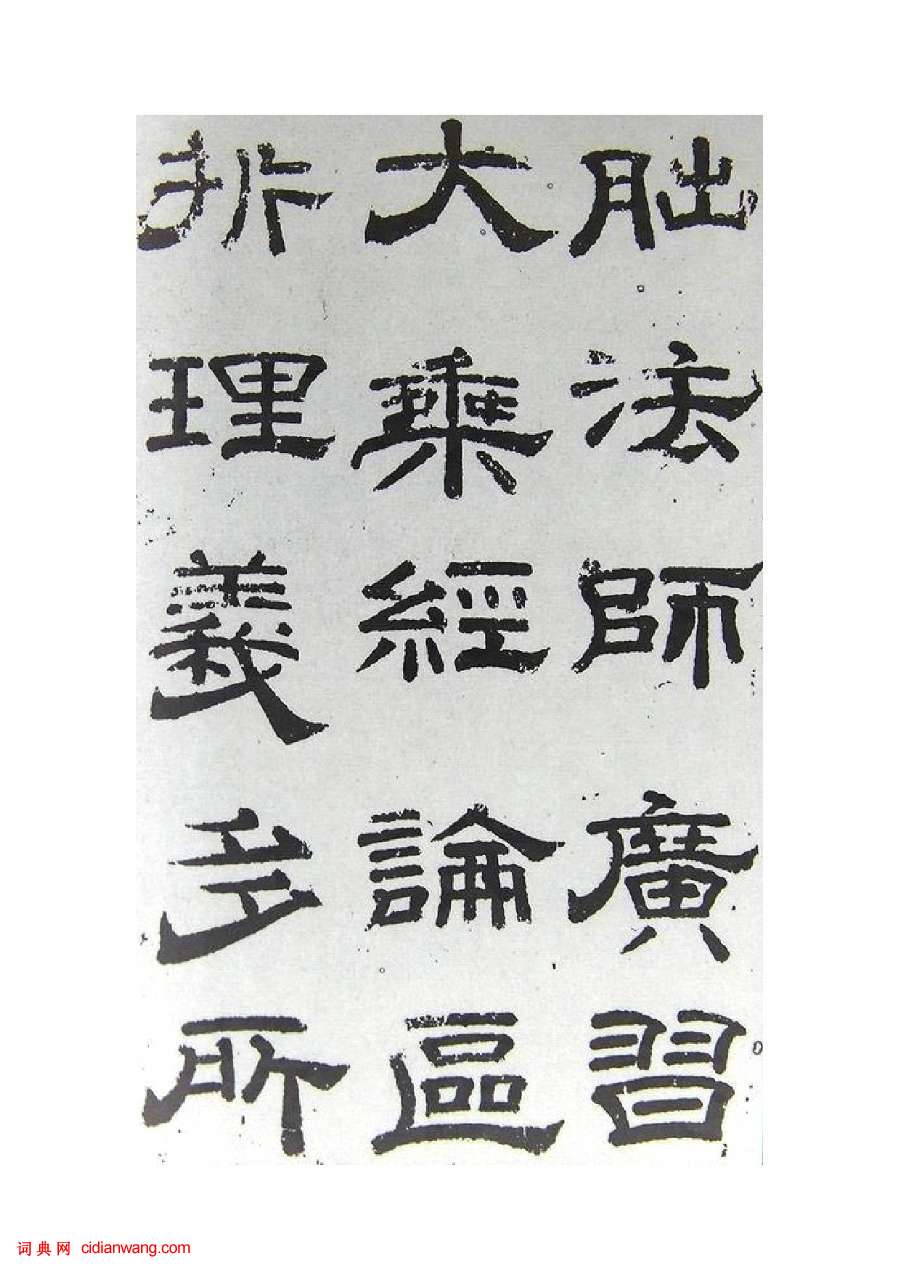 朏法師廣習
大乘經論區
析理義多所
词典网 cidianwang.com